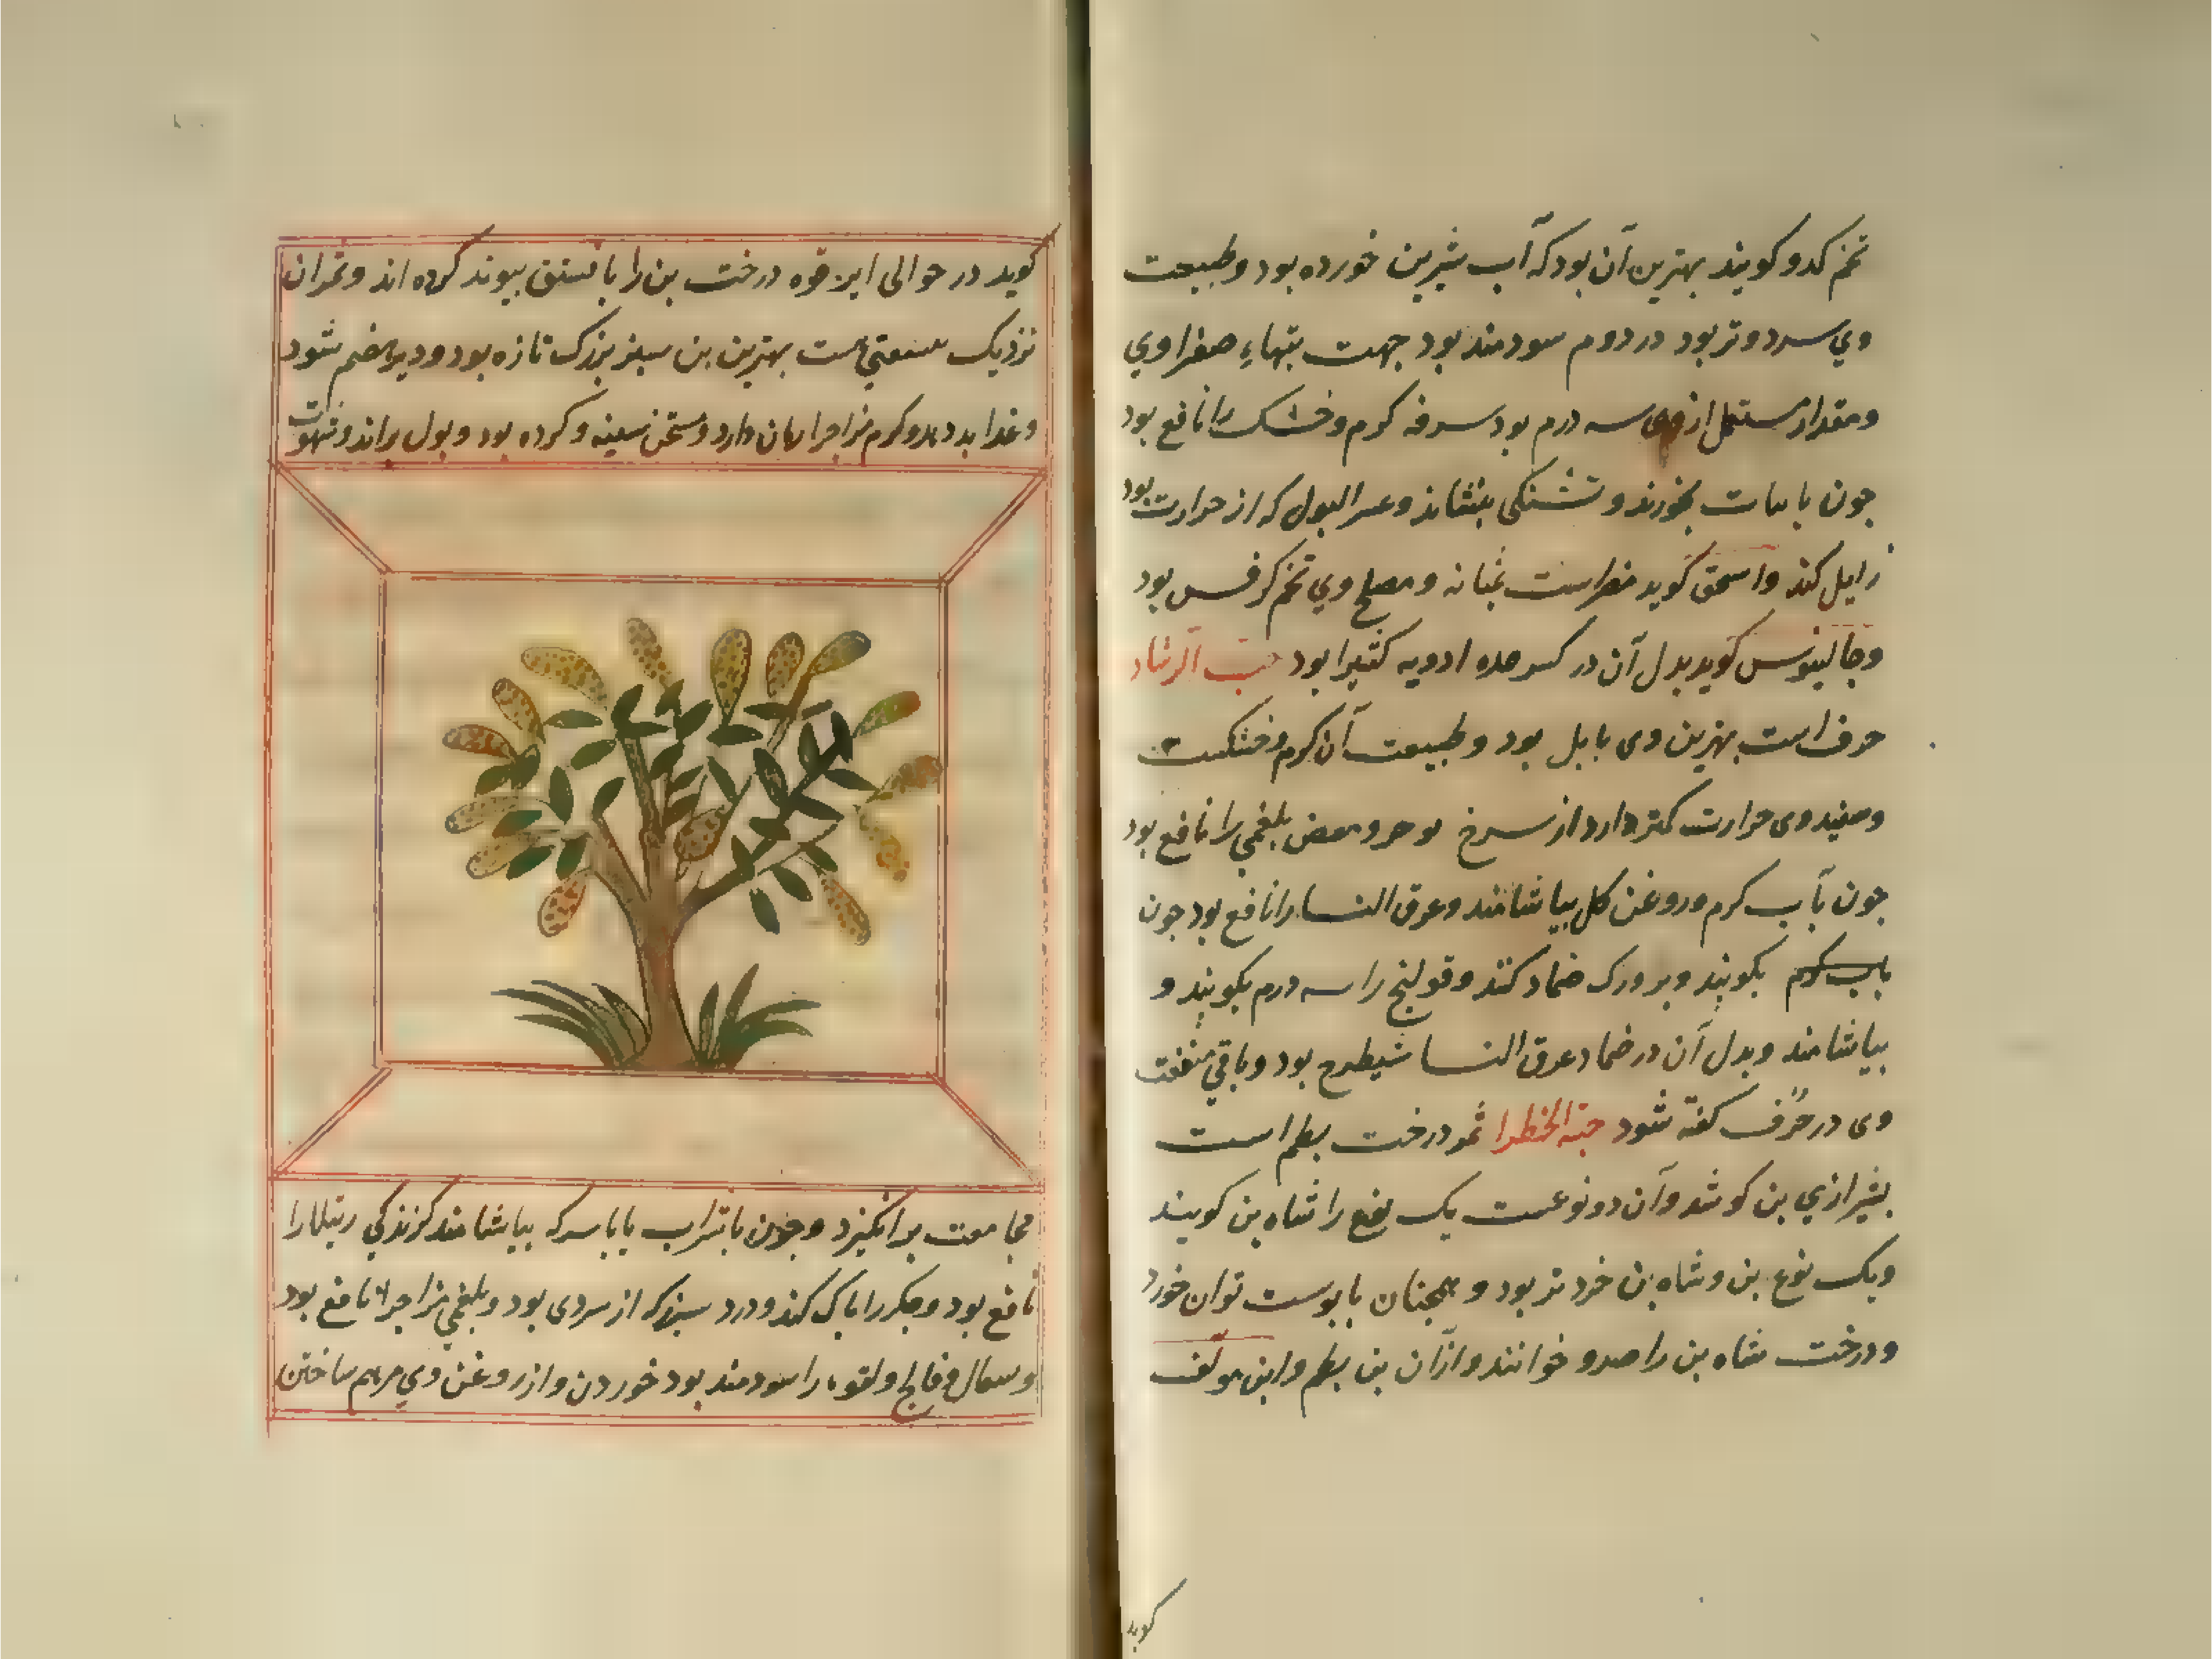 تخم کدو کویند بهترین آن بود که آب شیرین خورده بود و طبیعت
وي سرد و تر بود در دوم سودمند بود جهت تبهاء صفراوي
و مقدار مستعمل از وی سه درم بود سرفه کرم و خشک را نافع بود
جون با نبات بخورند و تشنکی بنشاند و عسر البول که از حرارت بود
زایل کند و اسحق کوید مضر است بمثانه و مصلح وي تخم کرفس بود
و جالینوس کوید بدل آن در ادویه کتیرا بود حب الرشاد
حرف است بهترین وی بابل بود و طبیعت آن کرم و خشکست
و سفید وی حرارت کمتر دارد از سرخ بلغمي را نافع بود
جون بآب کرم و روغن کل بیاشامند و عرق النسا را نافع بود جون
بآب کرم بکوبند و بر ورک ضماد کنند و قولنج را سه درم بکوبند و
بیاشامند و بدل آن در ضماد عرق النسا شیطرج بود و باقي منفعت
وی در حُرف کفته شود حبة الخظرا ثمر درخت بطم است
بشیرازي بن کوشد و آن دو نوعست یک نوع را شاه بن کویند
و یک نوع بن و شاه بن خرد تر بود و همجنان با بوست توان خورد
و درخت شاه بن را صرو خوانند و ازآن بن بطم و ابن مولف
کوید
کوید در حوالی ابرقوه درخت بن را با فستق بیوند کرده اند و ثمر آن
نزدیک بفستقي است بهترین بن سبز بزرک تازه بود و دیر هضم شود
و غذا بد دهد و کرم مزاجرا زیان دارد و مسخن سینه و کرده بود و بول براند و شهوت
مجامعت برانکیزد و جون با شراب یا با سرکه بیاشامند کزندکي رتیلا را
نافع بود و جکر را باک کند و درد سبرز که از سردی بود و بلغمي مزاجرا نافع بود
و سعال و فالج و لقوه را سودمند بود خوردن و از روغن وي مرهم ساختن